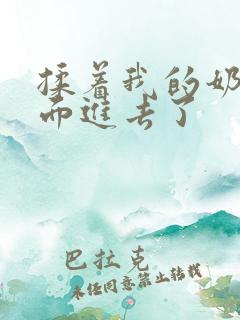 揉着我的奶
而进去了
巴拉克
未经同意禁止转载